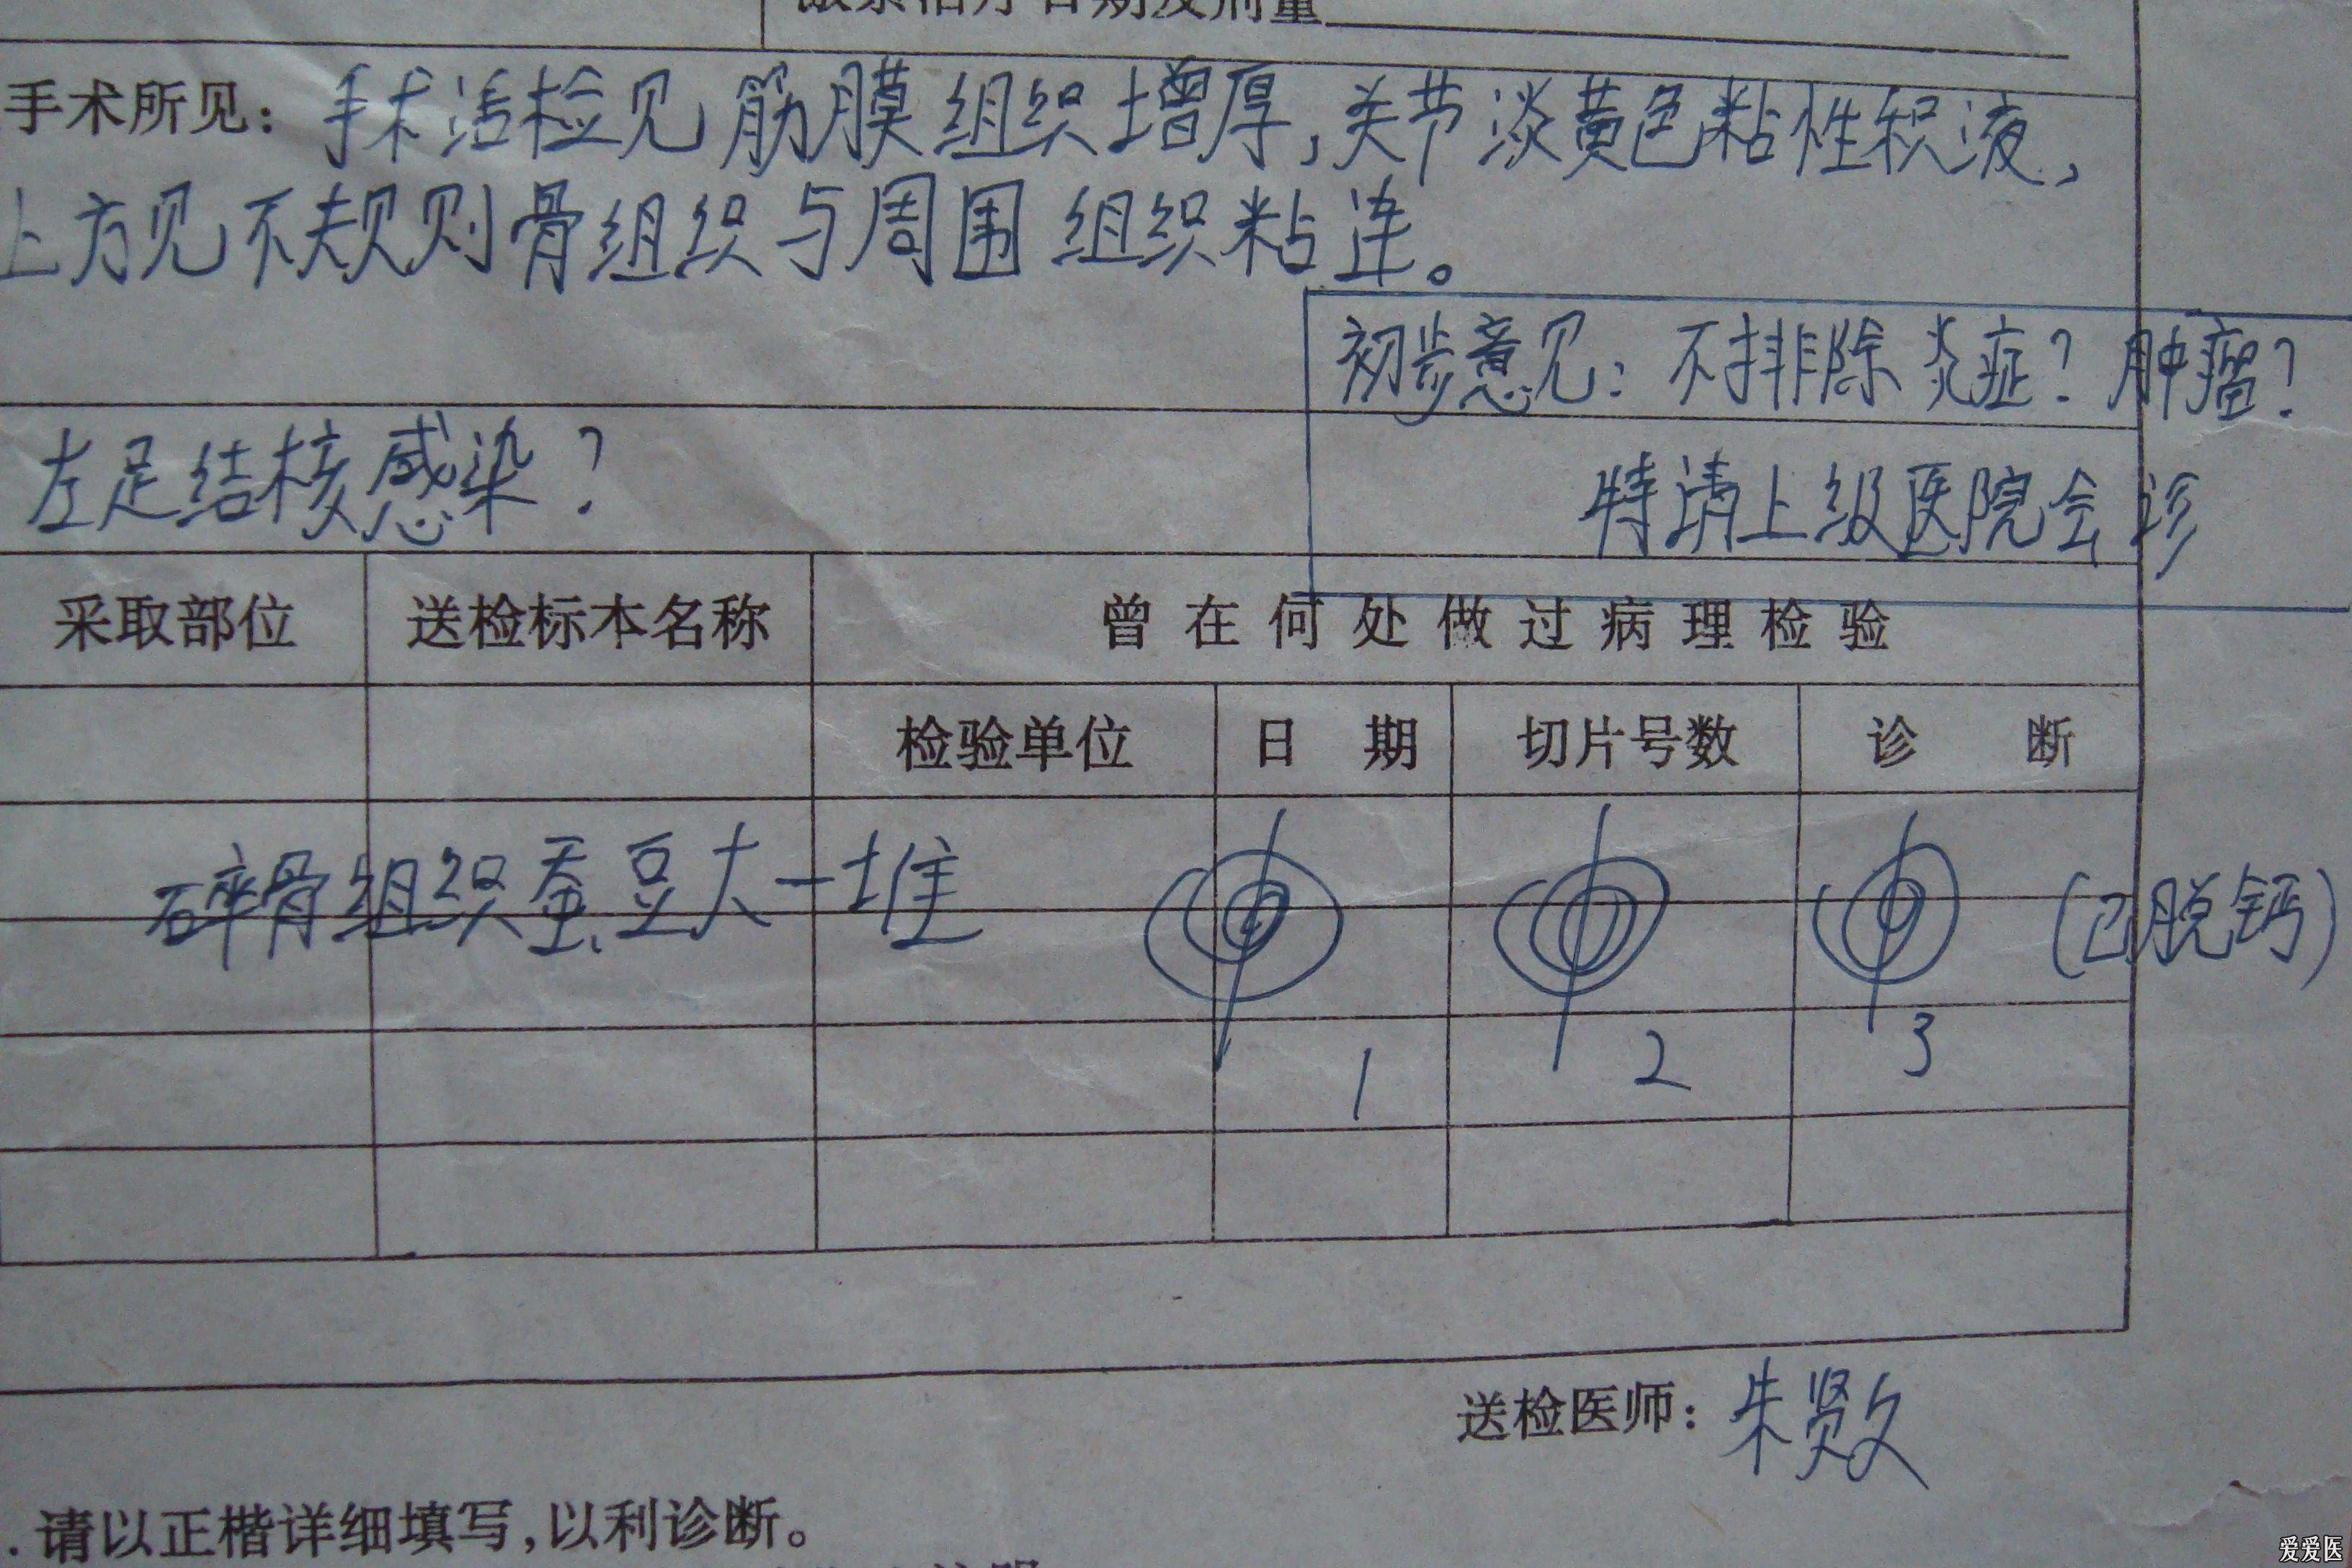 激素治疗日期及剂量
手术所见：手术活检见筋膜组织增厚，关节淡黄色粘性积液，
上方见不规则骨组织与周围组织粘连。
初步意见：不排除炎症？肿瘤？
左足结核感染？
特请上级医院会诊
采取部位 送检标本名称 曾在何处做过病理检验
检验单位 日期 切片号数 诊断
碎骨组织蚕豆大一堆 (已脱钙)
1 2 3
送检医师：朱贤文
.请以正楷详细填写,以利诊断。
爱爱医